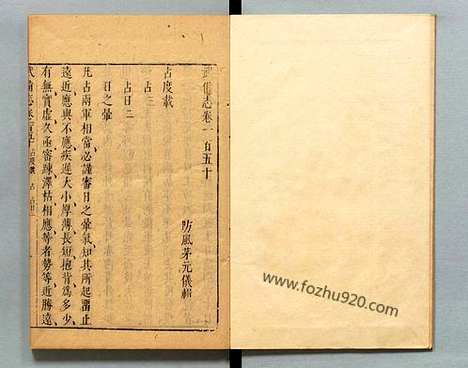 武備志卷一百五十
防風茅元儀輯
占度載
占三
占日二
日之暈
凡占兩軍相當必謹審日之暈氣知其所起留止
遠近應與不應疾遲大小厚薄長短抱背為多少
有無實虛久亟密踈澤枯相應等者勢等近勝遠
武備志卷一百五十 占度載 占
www.fozhu920.com